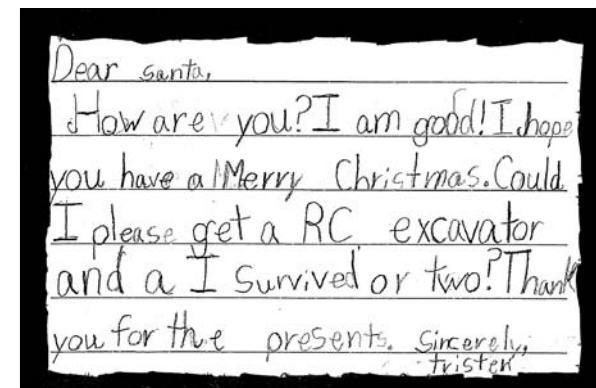 Dear santa,
How are you? I am good! I hope
you have a Merry Christmas. Could
I please get a RC excavator
and a I Survived or two? Thank
you for the presents. Sincerely,
tristen